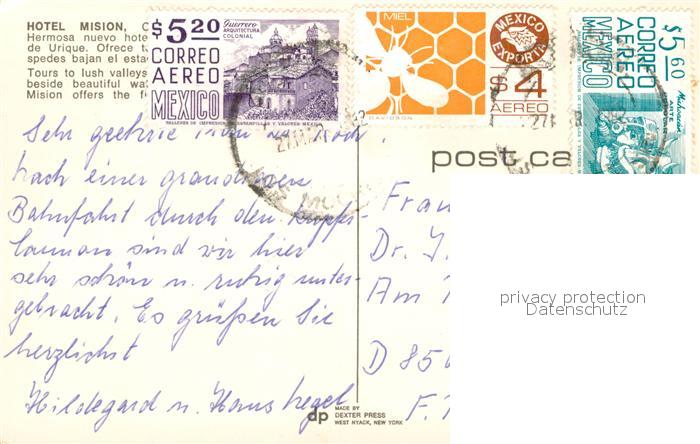 HOTEL MISION, C
Hermosa nuevo hote
de Urique. Ofrece t
spedes bajan el esta
Tours to lush valleys
beside beautiful wa
Mision offers the f
$5.20
Guerrero
ARQUITECTURA
COLONIAL
CORREO
AEREO
MEXICO
MIEL
DAVIDSON
MEXICO
EXPORTA
$4
AEREO
$5.60
CORREO
AEREO
MEXICO
Michoacán
ARTE
post ca
Sehr geehrte
nach einer grandiosen
Bahnfahrt durch den
sind wir hier
sehr schön u. ruhig unter-
gebracht. Es grüßen Sie
herzlichst
Hildegard u. Hans
Frau
Dr. J.
Am
D 850
F.
privacy protection
Datenschutz
dp
MADE BY
DEXTER PRESS
WEST NYACK, NEW YORK